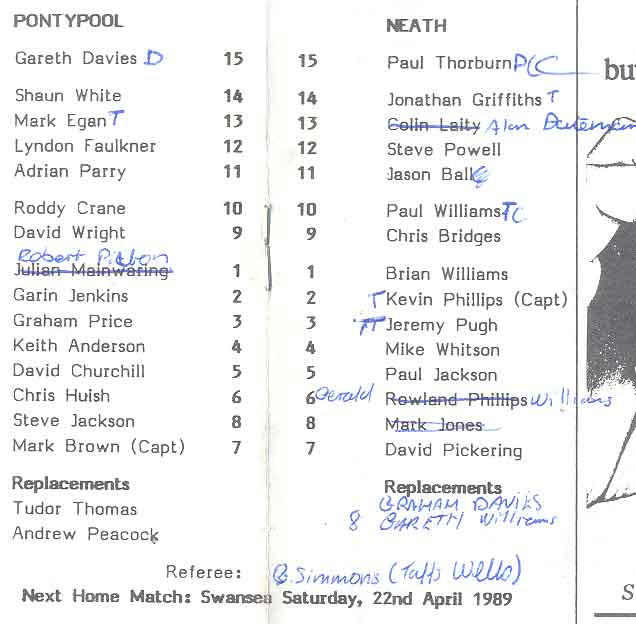 PONTYPOOL NEATH
Gareth Davies D 15 15 Paul Thorburn PCC
bu
Shaun White 14 14 Jonathan Griffiths T
Mark Egan T 13 13 Colin Laity Alan
Lyndon Faulkner 12 12 Steve Powell
Adrian Parry 11 11 Jason Ball
Roddy Crane 10 10 Paul Williams TC
David Wright 9 9 Chris Bridges
Robert
Julian Mainwaring 1 1 Brian Williams
Garin Jenkins 2 2 T Kevin Phillips (Capt)
Graham Price 3 3 TT Jeremy Pugh
Keith Anderson 4 4 Mike Whitson
David Churchill 5 5 Paul Jackson
Chris Huish 6 6 Gerald Rowland Phillips Williams
Steve Jackson 8 8 Mark Jones
Mark Brown (Capt) 7 7 David Pickering
Replacements Replacements
Tudor Thomas GRAHAM DAVIES
Andrew Peacock 8 GARETH Williams
Referee: Simmons (Taffs Wells)
Next Home Match: Swansea Saturday, 22nd April 1989
S